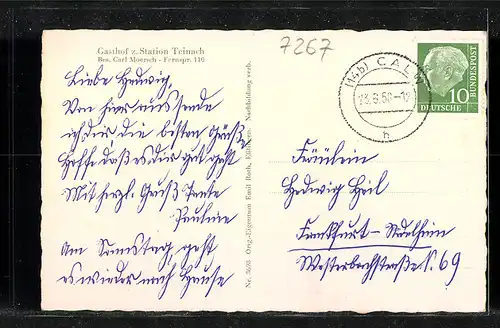 Gasthof z. Station Teinach
Bes. Carl Moersch - Fernspr. 140
7267
Liebe Hedwig,
Von hier aus sende
ich dir die besten Grüße
Hoffe daß es dir gut geht
Mit herzl. Gruß Tante
Pauline
Am Samstag geht
es wieder nach Hause
Nr. 5698 Orig.-Eigentum Emil Roth, Nachbildung verb.
(14b) CALW
23.8.56-12
b
DEUTSCHE
BUNDESPOST
10
Fräulein
Hedwig Heil
Frankfurt-Rödelheim
Westerbachstraße 69